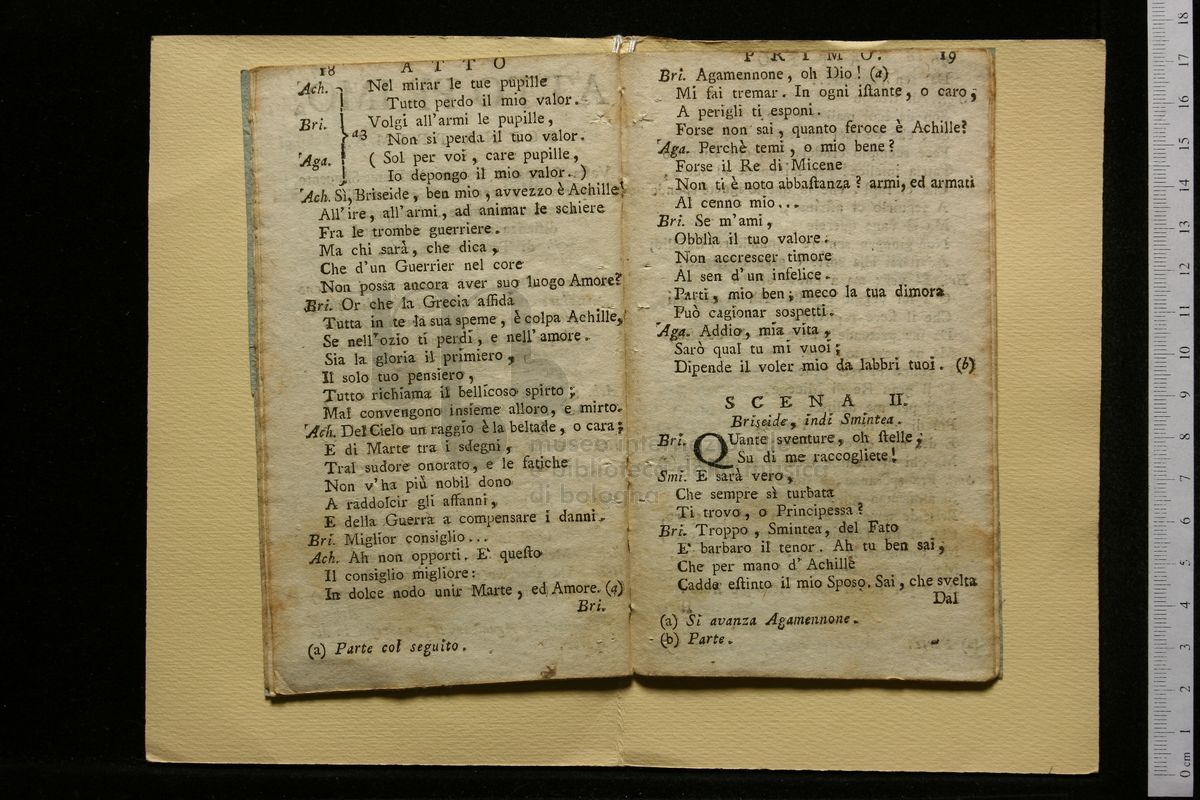 18 ATTO
Ach. Nel mirar le tue pupille
Tutto perdo il mio valor.
Bri. a3 Volgi all'armi le pupille,
Non si perda il tuo valor.
Aga. ( Sol per voi, care pupille,
Io depongo il mio valor. )
Ach. Sì, Briseide, ben mio, avvezzo è Achille
All'ire, all'armi, ad animar le schiere
Fra le trombe guerriere.
Ma chi sarà, che dica,
Che d'un Guerrier nel core
Non possa ancora aver suo luogo Amore?
Bri. Or che la Grecia affida
Tutta in te la sua speme, è colpa Achille,
Se nell'ozio ti perdi, e nell'amore.
Sia la gloria il primiero,
Il solo tuo pensiero,
Tutto richiama il bellicoso spirto;
Mal convengono insieme alloro, e mirto.
Ach. Del Cielo un raggio è la beltade, o cara;
E di Marte tra i sdegni,
Tral sudore onorato, e le fatiche
Non v'ha più nobil dono
A raddolcir gli affanni,
E della Guerra a compensare i danni.
Bri. Miglior consiglio...
Ach. Ah non opporti. E' queſto
Il consiglio migliore:
In dolce nodo unir Marte, ed Amore. (a)
Bri.
(a) Parte col seguito.
PRIMO. 19
Bri. Agamennone, oh Dio! (a)
Mi fai tremar. In ogni iſtante, o caro,
A perigli ti esponi.
Forse non sai, quanto feroce è Achille?
Aga. Perchè temi, o mio bene?
Forse il Re di Micene
Non ti è noto abbaſtanza? armi, ed armati
Al cenno mio...
Bri. Se m'ami,
Obblìa il tuo valore.
Non accrescer timore
Al sen d'un infelice.
Parti, mio ben; meco la tua dimora
Può cagionar sospetti.
Aga. Addio, mia vita,
Sarò qual tu mi vuoi;
Dipende il voler mio da labbri tuoi. (b)
SCENA II.
Briseide, indi Smintea.
Bri. QUante sventure, oh ſtelle,
Su di me raccogliete!
Smi. E sarà vero,
Che sempre sì turbata
Ti trovo, o Principessa?
Bri. Troppo, Smintea, del Fato
E' barbaro il tenor. Ah tu ben sai,
Che per mano d'Achille
Cadde eſtinto il mio Sposo. Sai, che svelta
Dal
(a) Si avanza Agamennone.
(b) Parte.